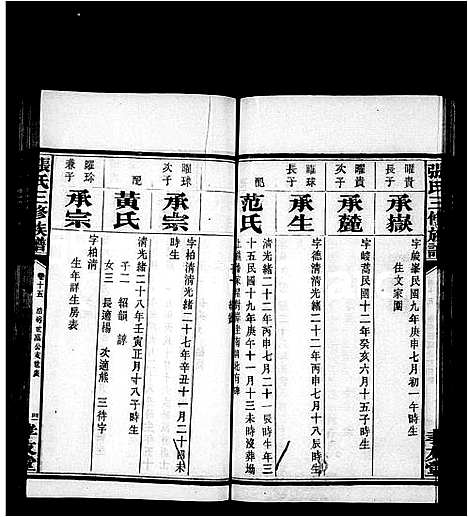 張氏三修族譜
曜貴
長子
承嶽
字峻峯民國九年庚申七月初一午時生
住文家園
曜貴
次子
承麓
字峻蒿民國十二年癸亥六月十五子時生
曜球
長子
承生
字德清清光緒二十二年丙申七月十八辰時生
配
范氏
清光緒二十二年丙申七月十八辰時生年三
十五民國十九年庚午十一月十三未時沒葬
曜球
次子
承宗
字柏清清光緒二十七年辛丑十一月二十四未
時生
配
黃氏
清光緒二十八年壬寅正月十八子時生
子二 紹韻 諄
女三 長適楊 次適熊 三待字
曜珍
兼子
承宗
字柏清
生年詳生房表
張氏三修族譜
卷十五
孝友堂